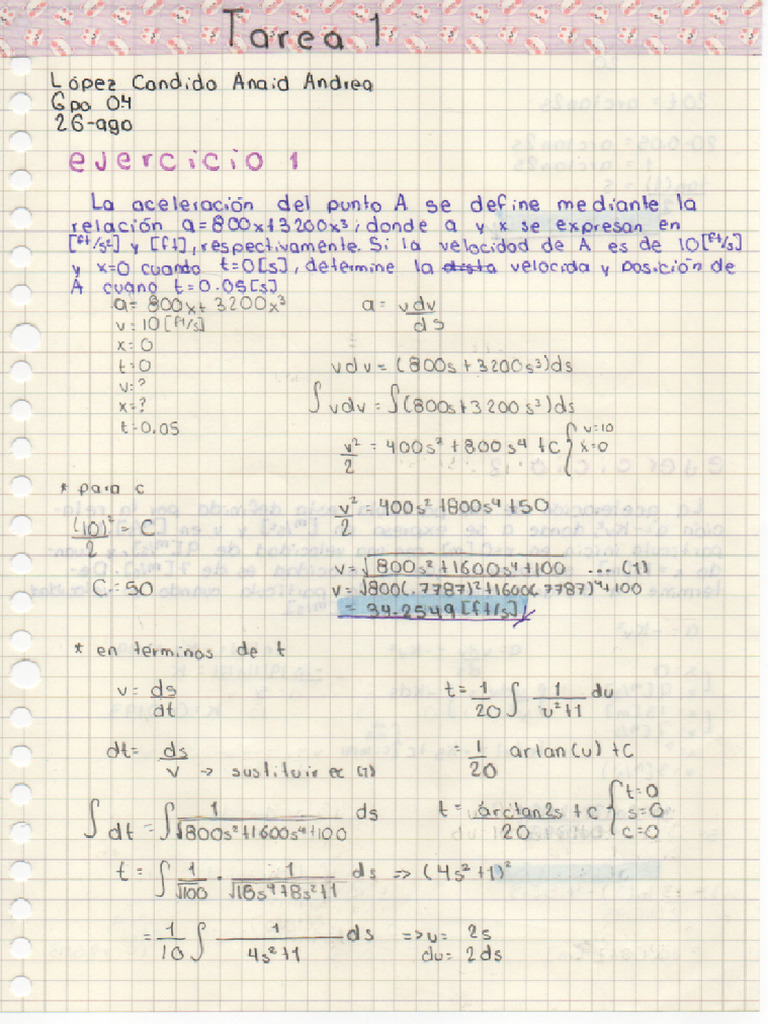 Tarea 1
López Candido Anaid Andrea
Gpo 04
26-ago
ejercicio 1
La aceleración del punto A se define mediante la
relación a=800x+3200x³; donde a y x se expresan en
[ft/s²] y [ft], respectivamente. Si la velocidad de A es de 10[ft/s]
y x=0 cuando t=0[s], determine la velocida y posición de
A cuano t=0.05[s]
a= 800x+3200x³
v=10[ft/s]
x=0
t=0
v=?
x=?
t=0.05
a= vdv/ds
vdv=(800s+3200s³)ds
∫vdv=∫(800s+3200s³)ds
v²/2 =400s²+800s⁴+C { v=10 x=0
* para c
(10)²/2 = C
C=50
v²/2 = 400s²+800s⁴+50
v=√800s²+1600s⁴+100 ... (1)
v=√800(.7787)²+1600(.7787)⁴+100
= 34.2549[ft/s]
* en terminos de t
v= ds/dt
dt= ds/v → sustituir ec (1)
∫dt =∫ 1/√800s²+1600s⁴+100 ds
t= ∫ 1/√100 · 1/√16s⁴+8s²+1 ds ⇒ (4s²+1)²
= 1/10 ∫ 1/4s²+1 ds ⇒ u= 2s
du= 2ds
t= 1/20 ∫ 1/u²+1 du
= 1/20 artan(u)+C
t= arctan2s/20 +C { t=0 s=0 c=0